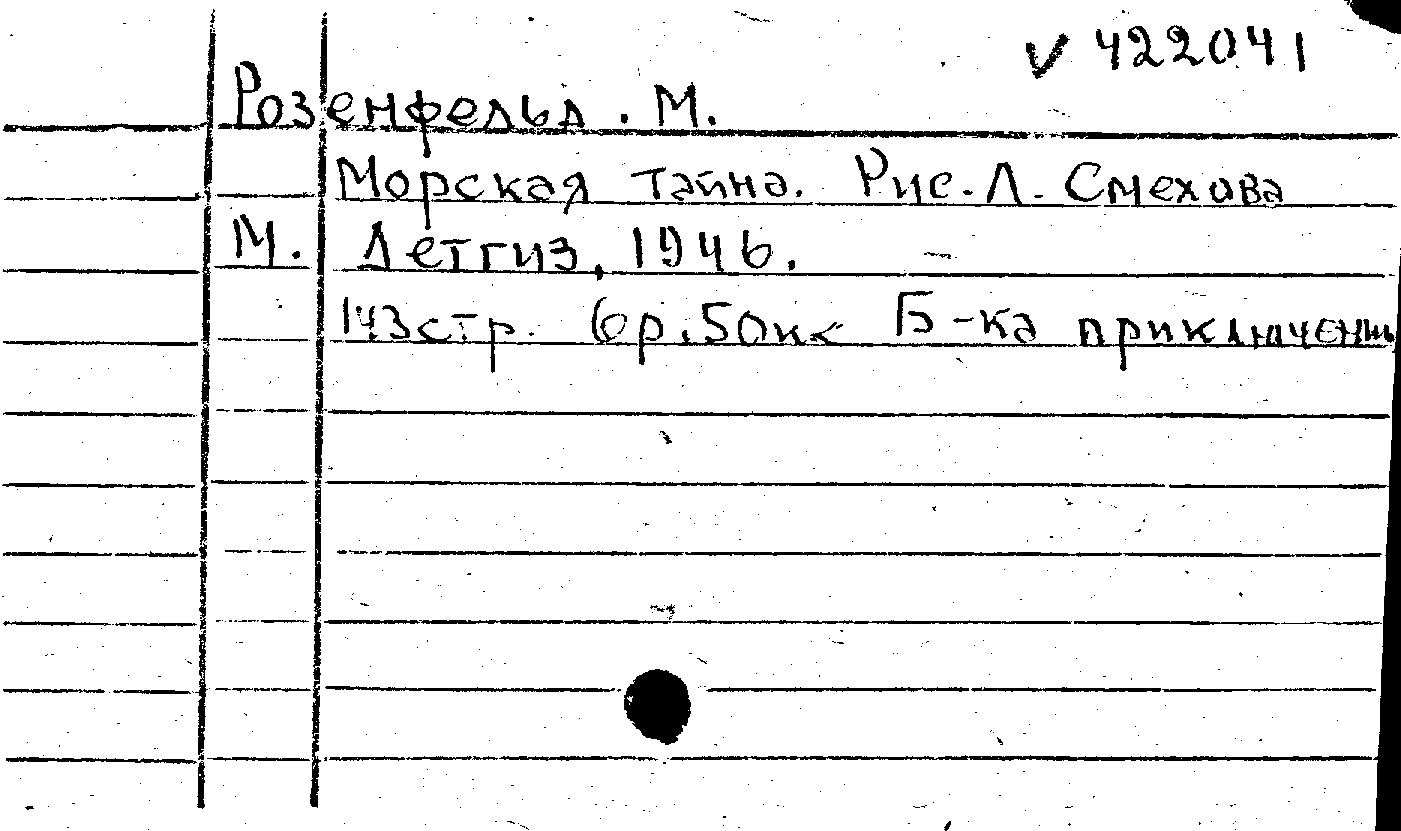 V 422041
Розенфельд. М.
Морская тайна. Рис. Л. Смехова
М. Детгиз, 1946.
143стр. 6р.50к Б-ка приключени